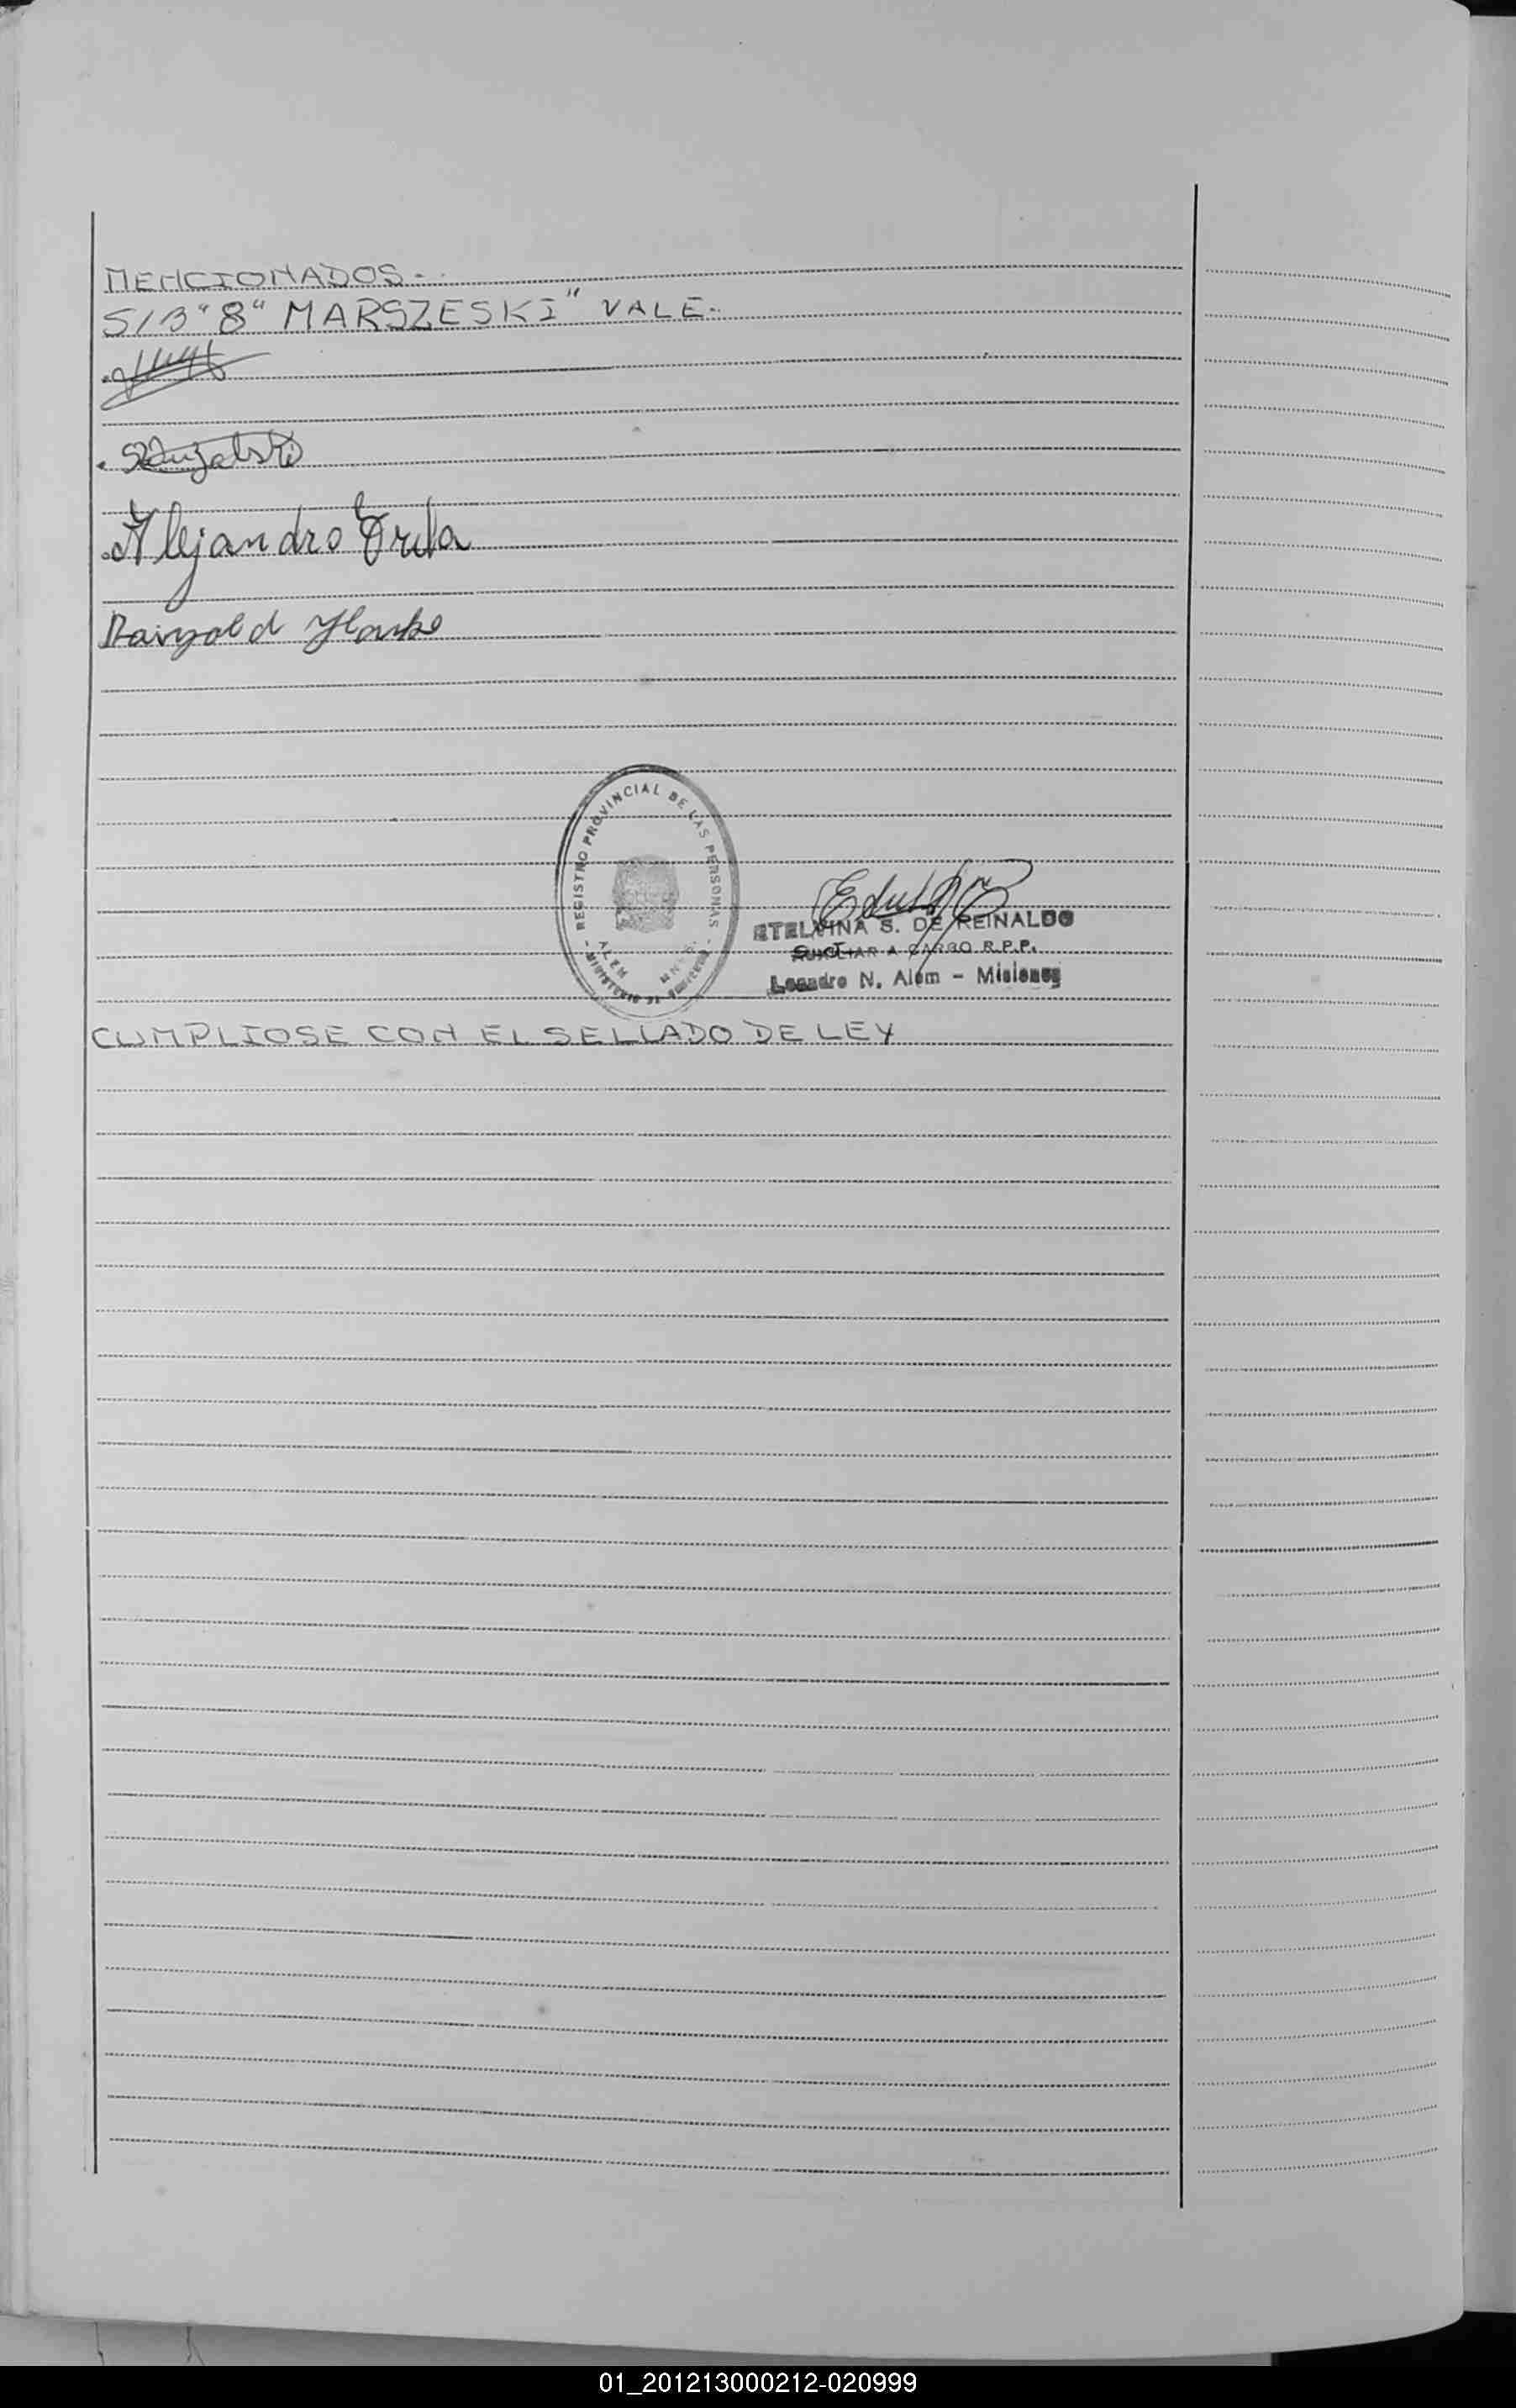 MENCIONADOS.-
S/B "8" MARSZESKI" VALE.-
Alejandro
REGISTRO PROVINCIAL DE LAS PERSONAS
ALEM MNES.
MINISTERIO DE GOBIERNO
ETELVINA S. DE REINALDO
AUXILIAR A CARGO R.P.P.
Leandro N. Alem - Misiones
CUMPLIOSE CON EL SELLADO DE LEY
01_201213000212-020999